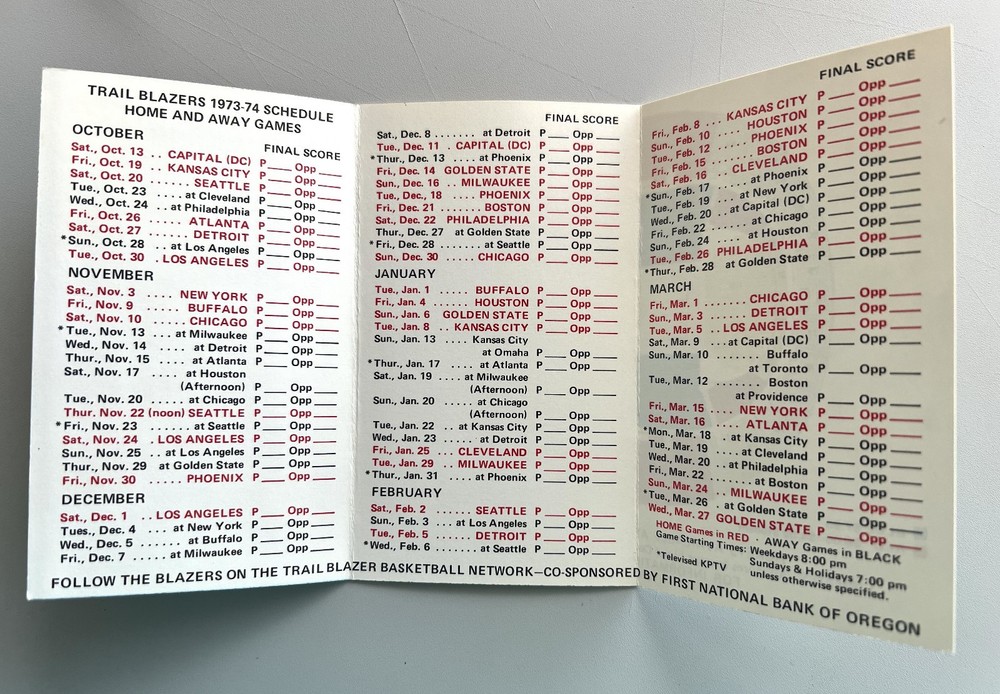 TRAIL BLAZERS 1973-74 SCHEDULE
HOME AND AWAY GAMES
OCTOBER
FINAL SCORE
Sat., Oct. 13 .. CAPITAL (DC) P___ Opp___
Fri., Oct. 19 .. KANSAS CITY P___ Opp___
Sat., Oct. 20 ...... SEATTLE P___ Opp___
Tue., Oct. 23 .... at Cleveland P___ Opp___
Wed., Oct. 24 .. at Philadelphia P___ Opp___
Fri., Oct. 26 ..... ATLANTA P___ Opp___
Sat., Oct. 27 ...... DETROIT P___ Opp___
*Sun., Oct. 28 .. at Los Angeles P___ Opp___
Tue., Oct. 30 . LOS ANGELES P___ Opp___
NOVEMBER
Sat., Nov. 3 .... NEW YORK P___ Opp___
Fri., Nov. 9 ...... BUFFALO P___ Opp___
Sat., Nov. 10 ..... CHICAGO P___ Opp___
*Tue., Nov. 13 ... at Milwaukee P___ Opp___
Wed., Nov. 14 ...... at Detroit P___ Opp___
Thur., Nov. 15 .... at Atlanta P___ Opp___
Sat., Nov. 17 ..... at Houston
(Afternoon) P___ Opp___
Tue., Nov. 20 ..... at Chicago P___ Opp___
Thur. Nov. 22 (noon) SEATTLE P___ Opp___
*Fri., Nov. 23 ...... at Seattle P___ Opp___
Sat., Nov. 24 . LOS ANGELES P___ Opp___
Sun., Nov. 25 .. at Los Angeles P___ Opp___
Thur., Nov. 29 at Golden State P___ Opp___
Fri., Nov. 30 ..... PHOENIX P___ Opp___
DECEMBER
Sat., Dec. 1 .. LOS ANGELES P___ Opp___
Tues., Dec. 4 .... at New York P___ Opp___
Wed., Dec. 5 ...... at Buffalo P___ Opp___
Fri., Dec. 7 ..... at Milwaukee P___ Opp___
FINAL SCORE
Sat., Dec. 8 ........ at Detroit P___ Opp___
Tue., Dec. 11 . CAPITAL (DC) P___ Opp___
*Thur., Dec. 13 .... at Phoenix P___ Opp___
Fri., Dec. 14 GOLDEN STATE P___ Opp___
Sun., Dec. 16 .. MILWAUKEE P___ Opp___
Tue., Dec. 18 ..... PHOENIX P___ Opp___
Fri., Dec. 21 ...... BOSTON P___ Opp___
Sat., Dec. 22 PHILADELPHIA P___ Opp___
Thur., Dec. 27 at Golden State P___ Opp___
*Fri., Dec. 28 ...... at Seattle P___ Opp___
Sun., Dec. 30 ..... CHICAGO P___ Opp___
JANUARY
Tue., Jan. 1 ...... BUFFALO P___ Opp___
Fri., Jan. 4 ...... HOUSTON P___ Opp___
Sun., Jan. 6 GOLDEN STATE P___ Opp___
Tue., Jan. 8 .. KANSAS CITY P___ Opp___
Sun., Jan. 13 .... Kansas City
at Omaha P___ Opp___
*Thur., Jan. 17 .... at Atlanta P___ Opp___
Sat., Jan. 19 .... at Milwaukee
(Afternoon) P___ Opp___
Sun., Jan. 20 ..... at Chicago
(Afternoon) P___ Opp___
Tue., Jan. 22 .. at Kansas City P___ Opp___
Wed., Jan. 23 ...... at Detroit P___ Opp___
Fri., Jan. 25 .. CLEVELAND P___ Opp___
Tue., Jan. 29 .. MILWAUKEE P___ Opp___
*Thur., Jan. 31 .... at Phoenix P___ Opp___
FEBRUARY
Sat., Feb. 2 ...... SEATTLE P___ Opp___
Sun., Feb. 3 ... at Los Angeles P___ Opp___
Tue., Feb. 5 ...... DETROIT P___ Opp___
*Wed., Feb. 6 ...... at Seattle P___ Opp___
FINAL SCORE
Fri., Feb. 8 ... KANSAS CITY P___ Opp___
Sun., Feb. 10 ..... HOUSTON P___ Opp___
Tue., Feb. 12 ..... PHOENIX P___ Opp___
Fri., Feb. 15 ...... BOSTON P___ Opp___
Sat., Feb. 16 ... CLEVELAND P___ Opp___
*Sun., Feb. 17 ..... at Phoenix P___ Opp___
Tue., Feb. 19 ... at New York P___ Opp___
Wed., Feb. 20 .. at Capital (DC) P___ Opp___
Fri., Feb. 22 ..... at Chicago P___ Opp___
Sun., Feb. 24 ..... at Houston P___ Opp___
Tue., Feb. 26 PHILADELPHIA P___ Opp___
*Thur., Feb. 28 at Golden State P___ Opp___
MARCH
Fri., Mar. 1 ....... CHICAGO P___ Opp___
Sun., Mar. 3 ...... DETROIT P___ Opp___
Tue., Mar. 5 .. LOS ANGELES P___ Opp___
Sat., Mar. 9 ... at Capital (DC) P___ Opp___
Sun., Mar. 10 ....... Buffalo
at Toronto P___ Opp___
Tue., Mar. 12 ....... Boston
at Providence P___ Opp___
Fri., Mar. 15 .... NEW YORK P___ Opp___
Sat., Mar. 16 .... ATLANTA P___ Opp___
*Mon., Mar. 18 .. at Kansas City P___ Opp___
Tue., Mar. 19 .... at Cleveland P___ Opp___
Wed., Mar. 20 .. at Philadelphia P___ Opp___
Fri., Mar. 22 ...... at Boston P___ Opp___
Sun., Mar. 24 .. MILWAUKEE P___ Opp___
*Tue., Mar. 26 . at Golden State P___ Opp___
Wed., Mar. 27 GOLDEN STATE P___ Opp___
HOME Games in RED · AWAY Games in BLACK
Game Starting Times: Weekdays 8:00 pm
Sundays & Holidays 7:00 pm
*Televised KPTV unless otherwise specified.
FOLLOW THE BLAZERS ON THE TRAIL BLAZER BASKETBALL NETWORK—CO-SPONSORED BY FIRST NATIONAL BANK OF OREGON